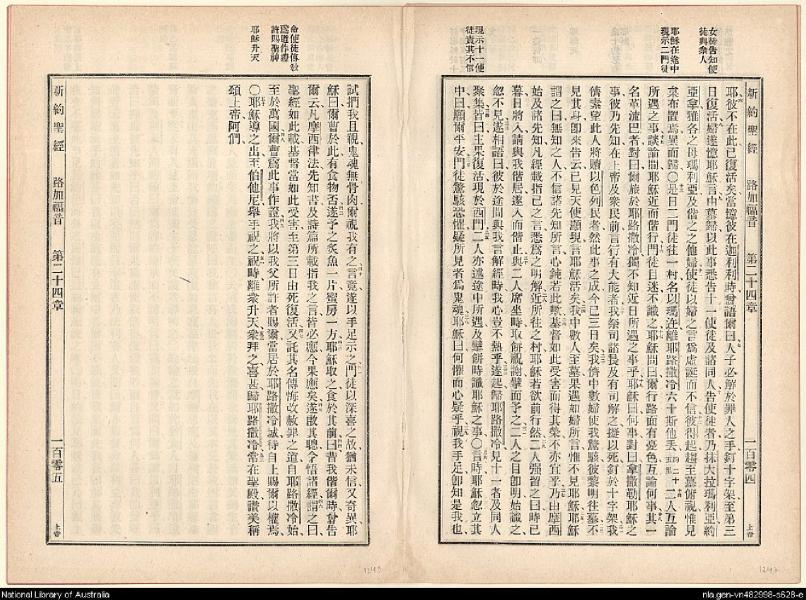 女徒告知使
徒與衆人
耶穌在途中
現示二門徒
現示十一使
徒責其不信
新約聖經 路加福音 第二十四章 一百零四 上帝
耶彼不在此已復活矣當憶彼在迦利利時曾語爾曰人子必解於罪人之手釘十字架至第三
日復活婦遂憶耶穌言由墓歸以此事悉告十一使徒及諸同人告使徒者乃抹大拉瑪利亞約
亞拿雅各之母瑪利亞及偕之之他婦使徒以婦之言爲虛誕而不信彼得起趨至墓俯視惟見
枲布置焉異而歸〇是日二門徒往一村名以瑪迕離耶路撒冷六十斯他丢二人互論
所遇之事談論間耶穌近而偕行門徒目迷不識之耶穌問曰爾行路面有憂色互論何事其一
名革流巴者對曰爾旅於耶路撒冷獨不知近日所遇之事乎耶穌曰何事對曰拿撒勒耶穌之
事彼乃先知在上帝及衆民前言行有大能者我祭司諸長及有司解之擬以死釘於十字架我
儕素望此人將贖以色列民者然此事之成今已三日矣我儕中數婦使我驚駭彼黎明往墓不
見其身卽來告云已見天使顯現言耶穌活矣我中數人至墓果遇如婦所言惟不見耶穌耶穌
謂之曰無知之人不信諸先知所言心鈍若此歟基督如此受害而得其榮不亦宜乎乃由摩西
始及諸先知凡經載指己之言悉爲之明解近所往之村耶穌若欲前行然二人强留之曰時已
暮日將入請與我偕居遂入而偕此與二人席坐時取餅祝謝擘而予之二人之目卽明始識之
忽不見遂相語曰彼於途間與我言解經時我心豈不熱乎遂起歸耶路撒冷見十一者及同人
聚集皆曰主果復活現於西門二人亦述途中所遇及擘餅時識耶穌之事〇言時耶穌忽立其
中曰願爾平安門徒驚駭恐懼疑所見者爲鬼魂耶穌曰何懼而心疑乎視我手足卽知是我也
命使徒傳教
爲道作證
許賜聖神
耶穌升天
試捫我且視鬼魂無骨肉爾視我有之言竟遂以手足示之門徒以深喜之故猶未信又奇異耶
穌曰爾曹於此有食物否遂予之炙魚一片蜜房一方耶穌取之食於其前曰昔我偕爾時曾告
爾云凡摩西律法先知書及詩篇所載指我之言皆必應今果應矣遂啟其聰令悟諸經謂之曰
聖經如此載基督當如此受害至第三日由死復活又託其名傳悔改赦罪之道自耶路撒冷始
至於萬國爾曹爲此事作證我將以我父所許者賜爾當居於耶路撒冷城待自上賜爾以權焉
〇耶穌導之出至伯他尼舉手祝之祝時離衆升天衆拜之喜甚歸耶路撒冷常在聖殿讚美稱
頌上帝阿們
新約聖經 路加福音 第二十四章 一百零五 上帝
1243
1247
National Library of Australia
nla.gen-vn482998-s628-e